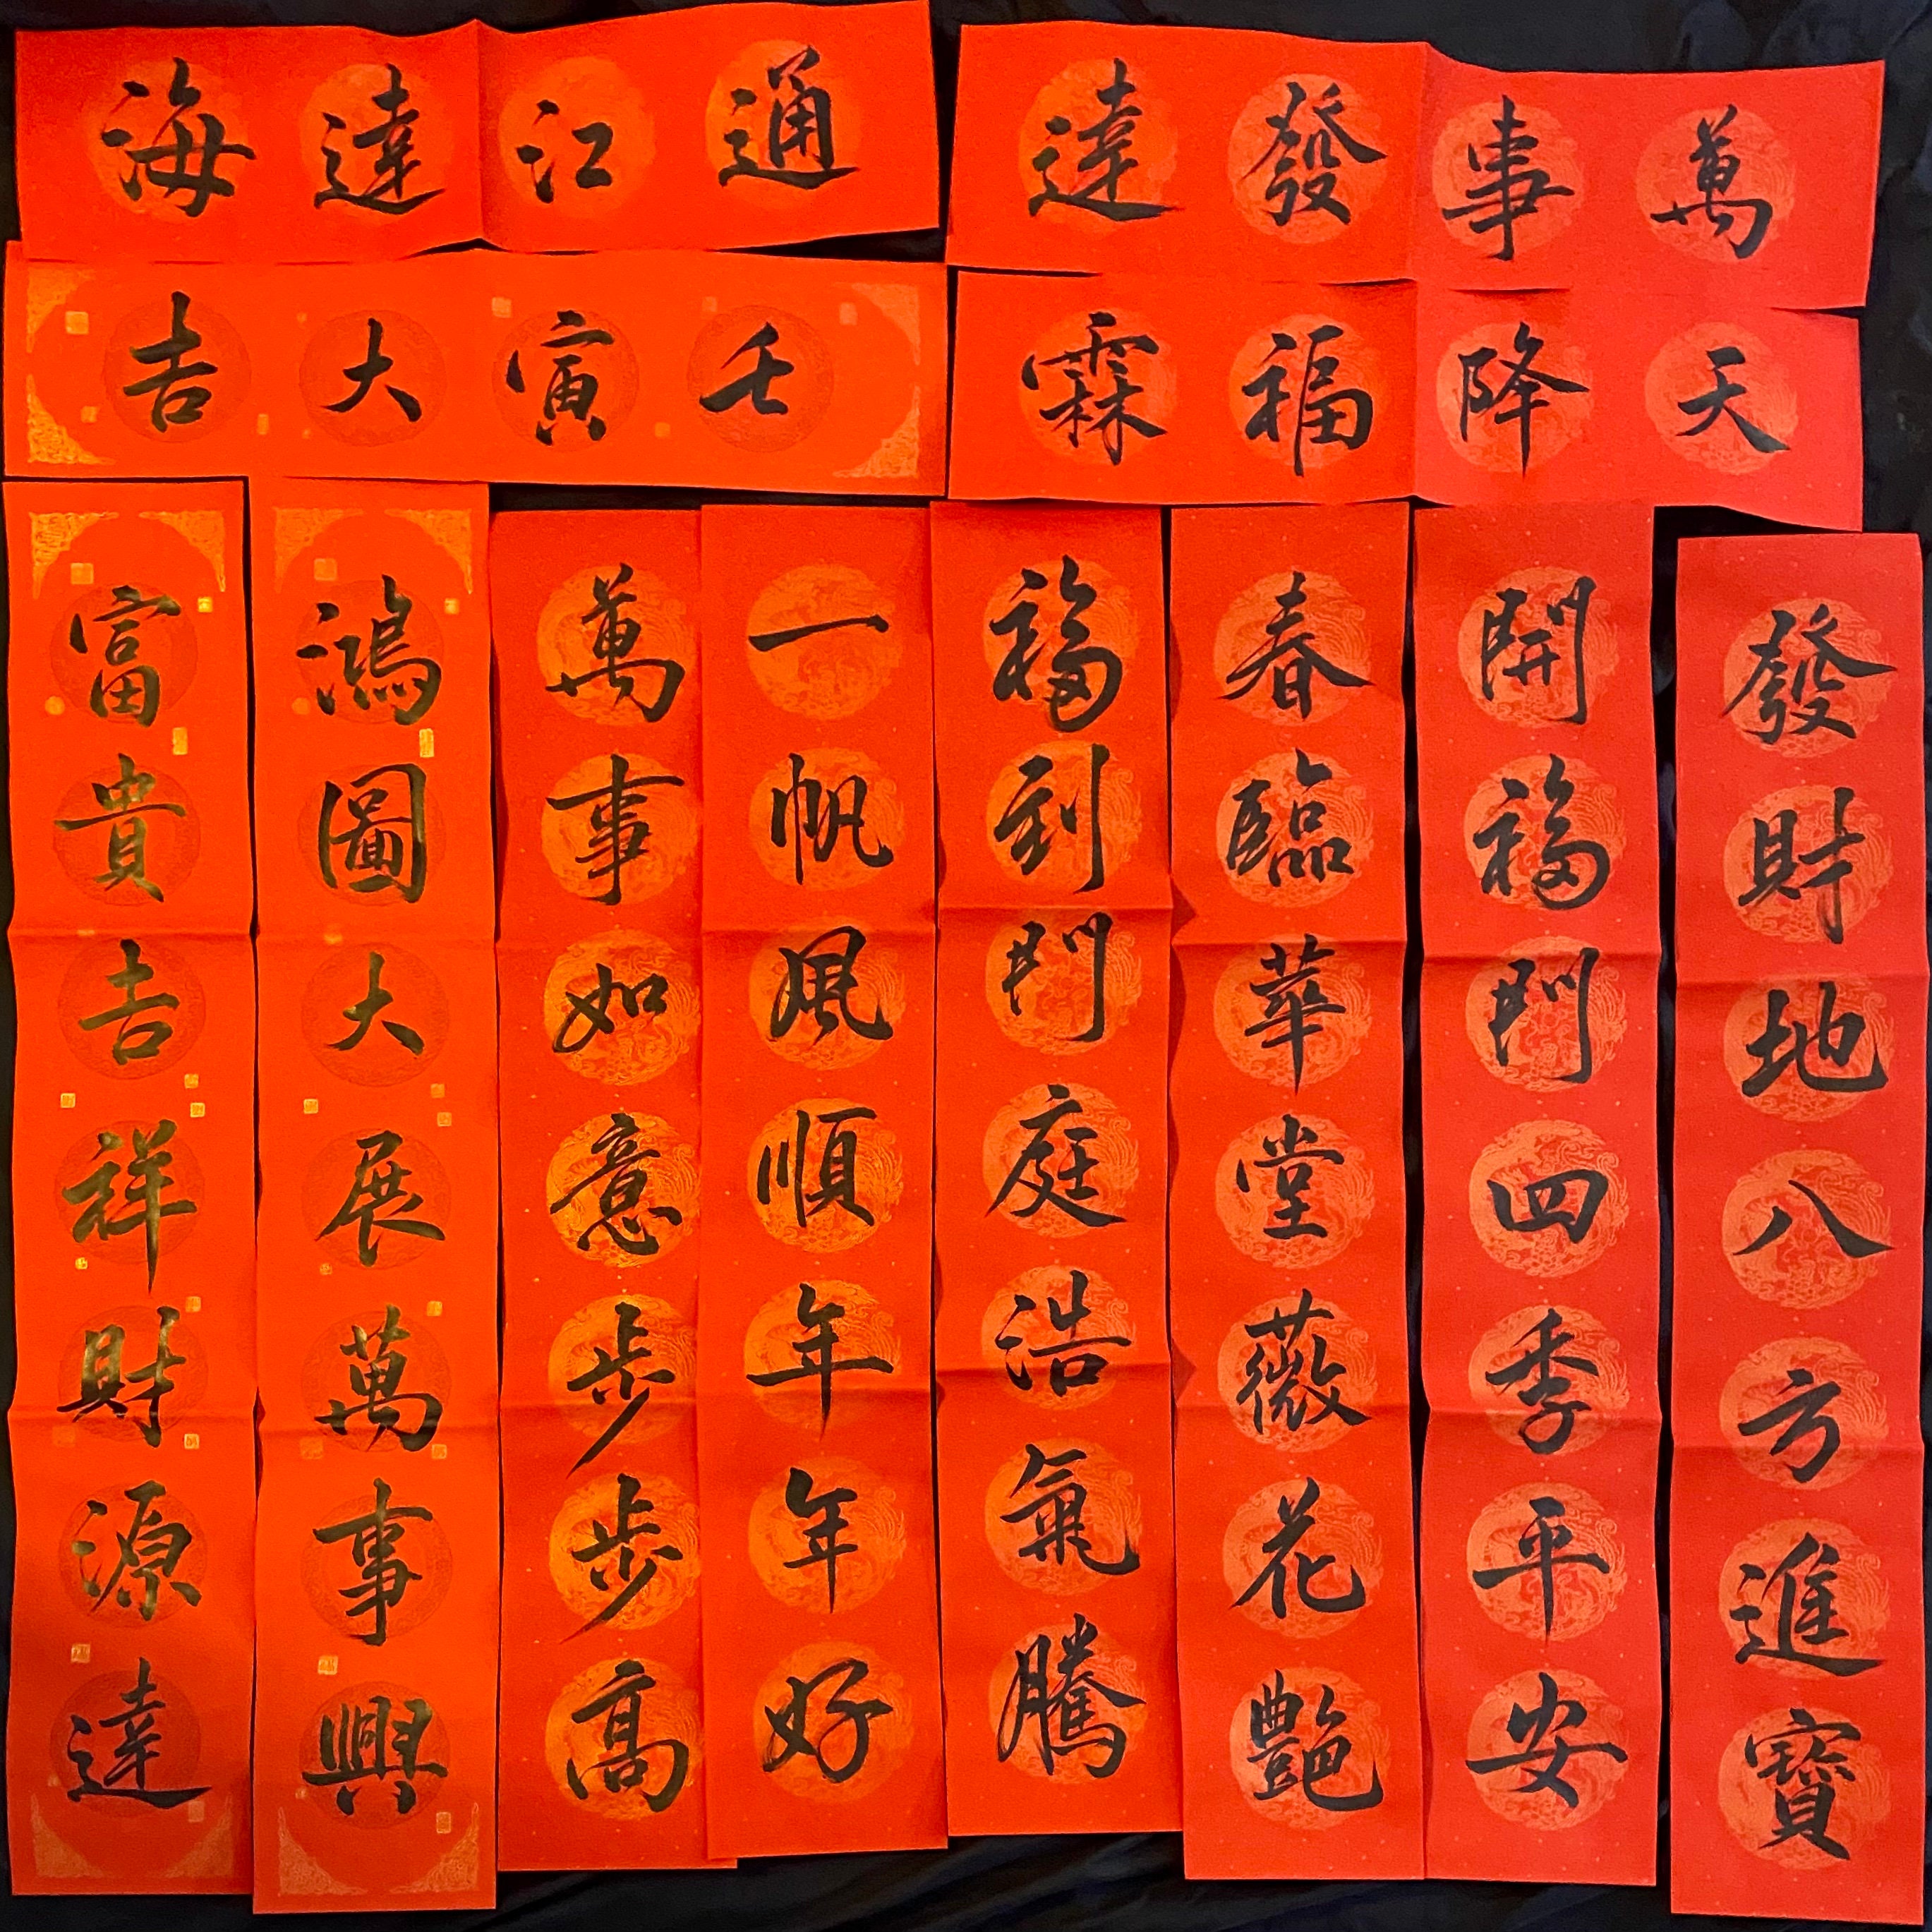 萬事發達
通江達海
天降福霖
壬寅大吉
發財地八方進寶
開福門四季平安
春臨華堂薇花艶
福到門庭浩氣騰
一帆風順年年好
萬事如意步步高
鴻圖大展萬事興
富貴吉祥財源達